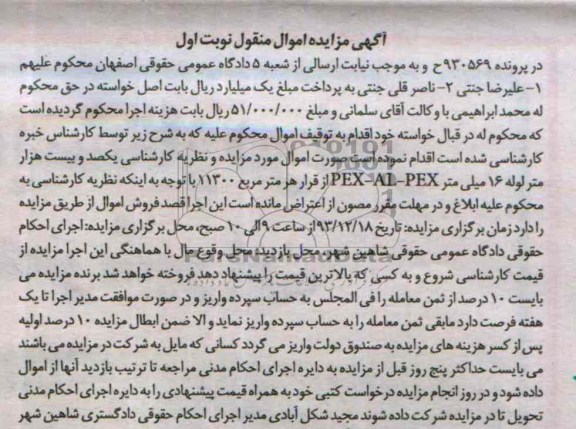 آگهی مزایده اموال منقول نوبت اول
در پرونده ۹۳۰۵۶۹ح و به موجب نیابت ارسالی از شعبه ۵ دادگاه عمومی حقوقی اصفهان محکوم علیهم
۱- علیرضا جنتی ۲- ناصر قلی جنتی به پرداخت مبلغ یک میلیارد ریال بابت اصل خواسته در حق محکوم
له محمد ابراهیمی با وکالت آقای سلمانی و مبلغ ۵۱/۰۰۰/۰۰۰ ریال بابت هزینه اجرا محکوم گردیده است
که محکوم له در قبال خواسته خود اقدام به توقیف اموال محکوم علیه که به شرح زیر توسط کارشناس خبره
کارشناسی شده است اقدام نموده است صورت اموال مورد مزایده و نظریه کارشناسی یکصد و بیست هزار
متر لوله ۱۶ میلی متر PEX-AL-PEX از قرار هر متر مربع ۱۱۳۰۰ با توجه به اینکه نظریه کارشناسی به
محکوم علیه ابلاغ و در مهلت مقرر مصون از اعتراض مانده است این اجرا قصد فروش اموال از طریق مزایده
را دارد زمان برگزاری مزایده: تاریخ ۹۳/۱۲/۱۸ از ساعت ۹ الی ۱۰ صبح، محل برگزاری مزایده: اجرای احکام
حقوقی دادگاه عمومی حقوقی شاهین شهر محل بازدید: محل وقوع مال با هماهنگی این اجرا مزایده از
قیمت کارشناسی شروع و به کسی که بالاترین قیمت را پیشنهاد دهد فروخته خواهد شد برنده مزایده می
بایست ۱۰ درصد از ثمن معامله را فی المجلس به حساب سپرده واریز و در صورت موافقت مدیر اجرا تا یک
هفته فرصت دارد مابقی ثمن معامله را به حساب سپرده واریز نماید و الا ضمن ابطال مزایده ۱۰ درصد اولیه
پس از کسر هزینه های مزایده به صندوق دولت واریز می گردد کسانی که مایل به شرکت در مزایده می باشند
می بایست حداکثر پنج روز قبل از مزایده به دایره اجرای احکام مدنی مراجعه تا ترتیب بازدید آنها از اموال
داده شود و در روز انجام مزایده درخواست کتبی خود به همراه قیمت پیشنهادی را به دایره اجرای احکام مدنی
تحویل تا در مزایده شرکت داده شوند مجید شکل آبادی مدیر اجرای احکام حقوقی دادگستری شاهین شهر